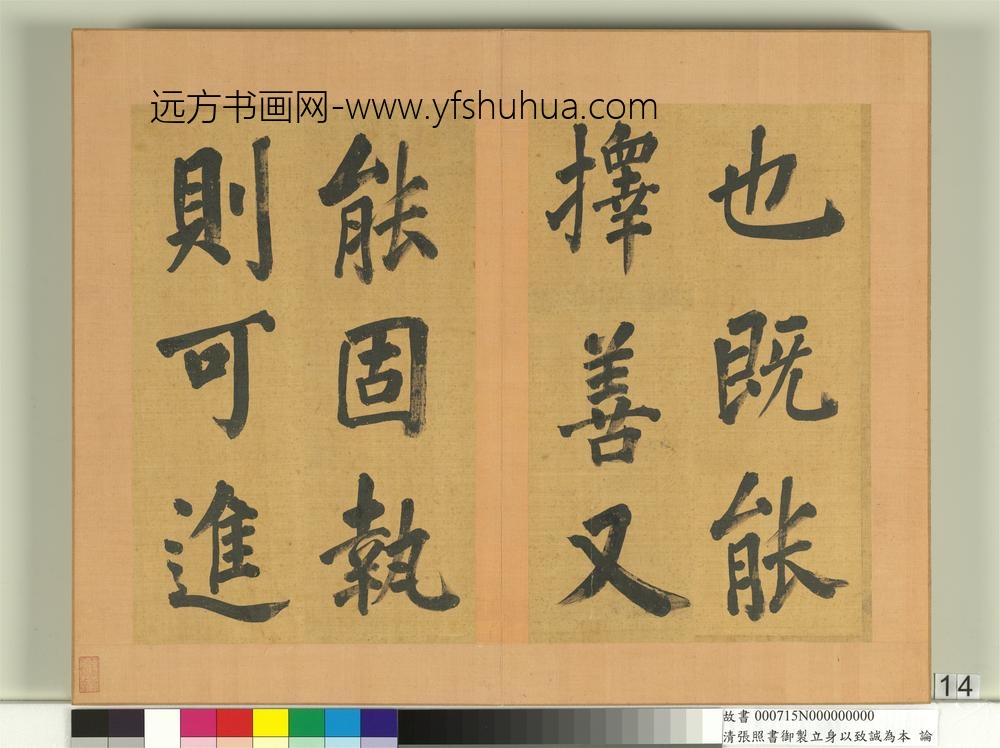 远方书画网-www.yfshuhua.com
也既能
擇善又
能固執
則可進
14
故書 000715N000000000
清張照書御製立身以致誠為本 論